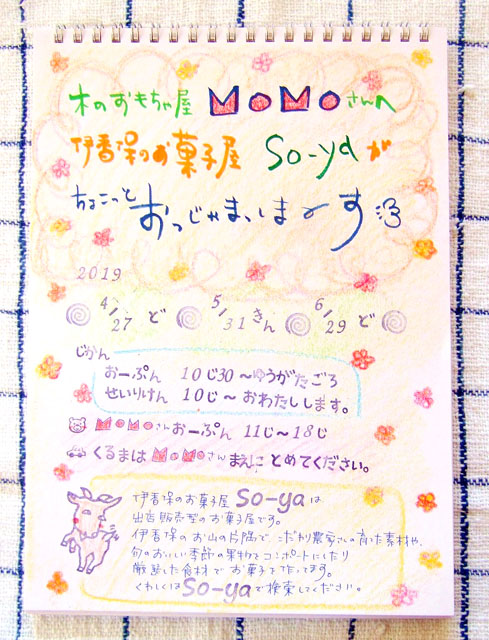 木のおもちゃ屋 MOMOさんへ
伊香保のお菓子屋 so-yaが
ちょこっと おっじゃまっしま～す
2019
4/27 ど 5/31 きん 6/29 ど
じかん
おーぷん 10じ30 ～ゆうがたごろ
せいりけん 10じ～ おわたしします。
MOMOさんおーぷん 11じ～18じ
くるまは MOMOさん まえに とめてください。
伊香保のお菓子屋 so-ya は
出店販売型のお菓子屋です。
伊香保のお山の片隅で こだわり農家さんの育てた素材や、
旬のおいしい季節の果物をコンポートにしたり
厳選した食材でお菓子を作ってます。
くわしくは so-ya で検索してください。